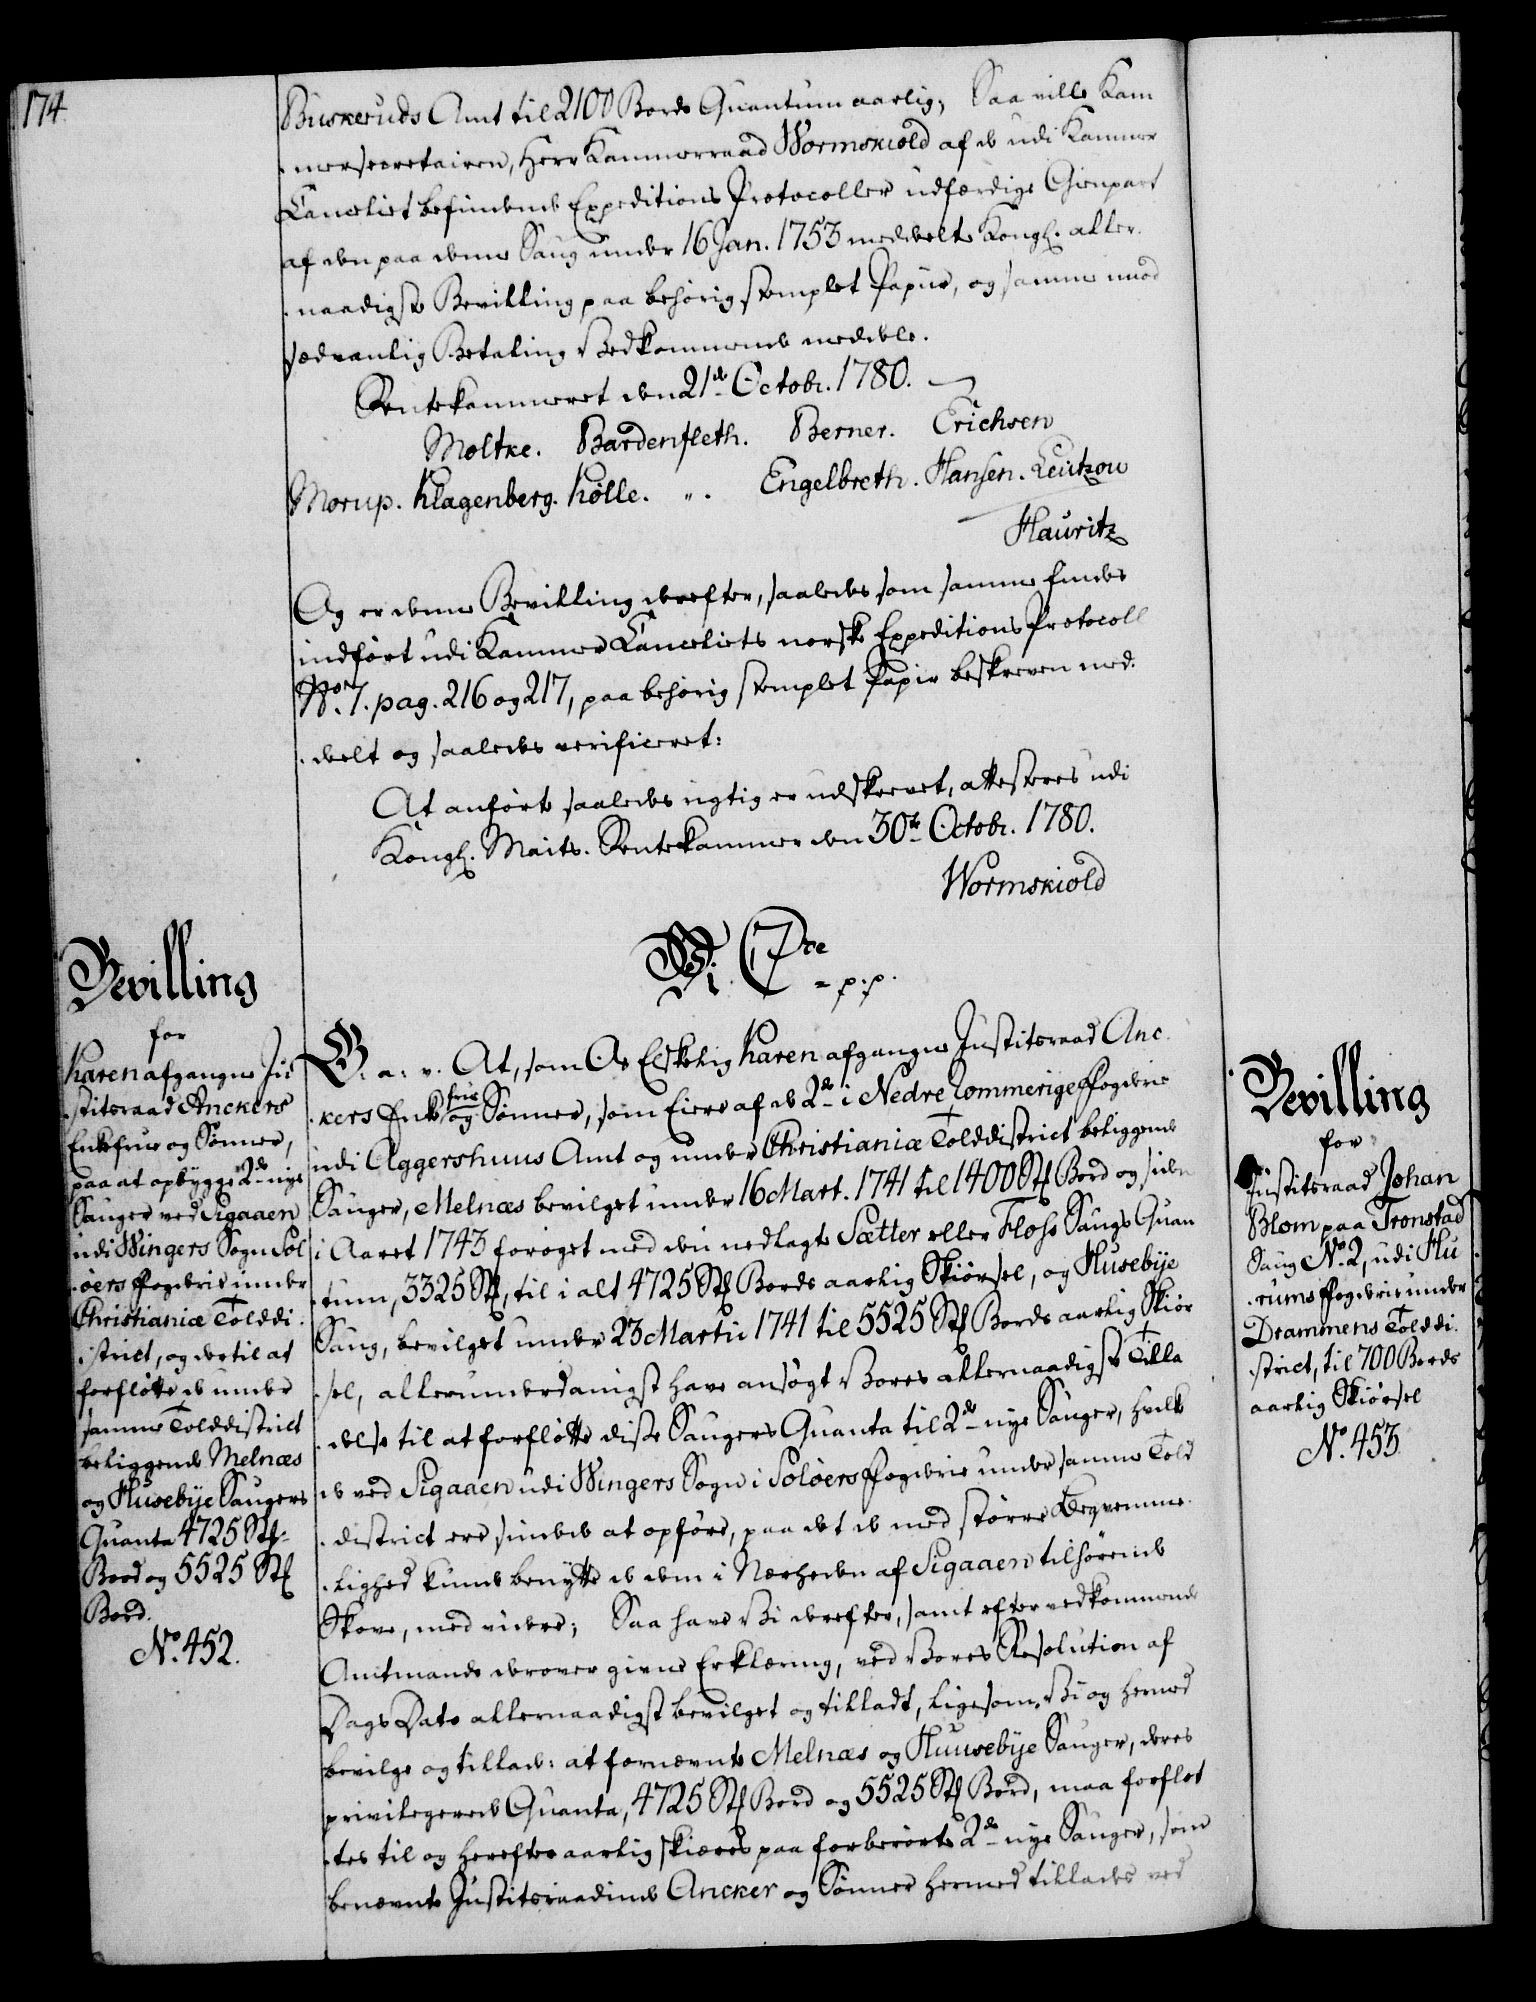 174.
Buskeruds Amt til 2100 Bords Quantum aarlig; Saa ville Kam
mersecretairen, Herr Kammerraad Wormskiold af de udi Kammer
Cancelliet befindende Expeditions Protocoller udfærdige Gienpart
af den paa denne Saug under 16 Jan. 1753 meddelte Kongl. aller
naadigste Bevilling paa behørig stemplet Papiir, og samme mod
sædvanlig Betaling Vedkommende meddele.
Rentekammeret den 21de Octobr. 1780.
Moltke. Bardenfleth. Berner. Erichsen
Morup. Klagenberg. Kølle. „. Engelbreth. Hansen. Leutzou
Hauritz
Og er denne Bevilling derefter, saaledes som samme findes
indført udi Kammer Cancelliets norske Expeditions Protocoll
No. 7. pag. 216 og 217, paa behørig stemplet Papir beskreven med
deelt og saaledes verificeret:
At anførte saaledes rigtig er udskrevet, attesteres udi
Kongl. Maits. Rentekammer den 30te Octobr. 1780.
Wormskiold
Bevilling
for
Karen afgangne Ju
stitsraad Anckers
Enkefrue og Sønner,
paa at opbygge 2de nye
Sauger ved Sigaaen
udi Wingers Sogn Sol
øers Fogderie under
Christianiæ Tolddi
strict, og dertil at
forfløtte de under
samme Tolddistrict
beliggende Melnæs
og Husebye Saugers
Quanta 4725 Stk
Bord og 5525 Stk
Bord.
No. 452.
Vi C 7de
p.p.
G. a. v. At, som Os Elskelig Karen afgangne Justitsraad Anc
kers Enke frue og Sønner, som Eiere af de 2de i Nedre Rommerige Fogderie
udi Aggershuus Amt og under Christianiæ Tolddistrict beliggende
Sauger, Melnæs bevilget under 16 Mart. 1741 til 1400 Stk Bord og siden
i Aaret 1743 forøget med den nedlagte Sætter eller Floss Saugs Quan
tum, 3325 Stk, til i alt 4725 Stk Bords aarlig Skiørsel, og Husebye
Saug, bevilget under 23 Martii 1741 til 5525 Stk Bords aarlig Skiør
sel, allerunderdanigst have ansøgt Vores allernaadigste Tilla
delse til at forfløtte disse Saugers Quanta til 2de nye Sauger, hvilke
de ved Sigaaen udi Wingers Sogn i Soløers Fogderie under samme Told
district ere sindede at opføre, paa det de med større Beqvemme
lighed kunde benytte de dem i Nærheden af Sigaaen tilhørende
Skove, med videre; Saa have Vi derefter, samt efter vedkommende
Amtmands derover givne Erklæring, ved Vores Resolution af
Dags Dato allernaadigst bevilget og tilladt, ligesom Vi og hermed
bevilge og tillade: at fornævnte Melnæs og Huusebye Sauger, deres
privilegerede Quanta, 4725 Stk Bord og 5525 Stk Bord, maa forfløt
tes til og herefter aarlig skiæres paa forberørte 2de nye Sauger, som
benævnte Justitsraadinde Ancker og Sønner hermed tillades ved
Bevilling
for
Justitsraad Johan
Blom paa Tronstad
Saug No. 2, udi Hu
rums Fogderie under
Drammens Tolddi
strict, til 700 Bords
aarlig Skiørsel
No. 453